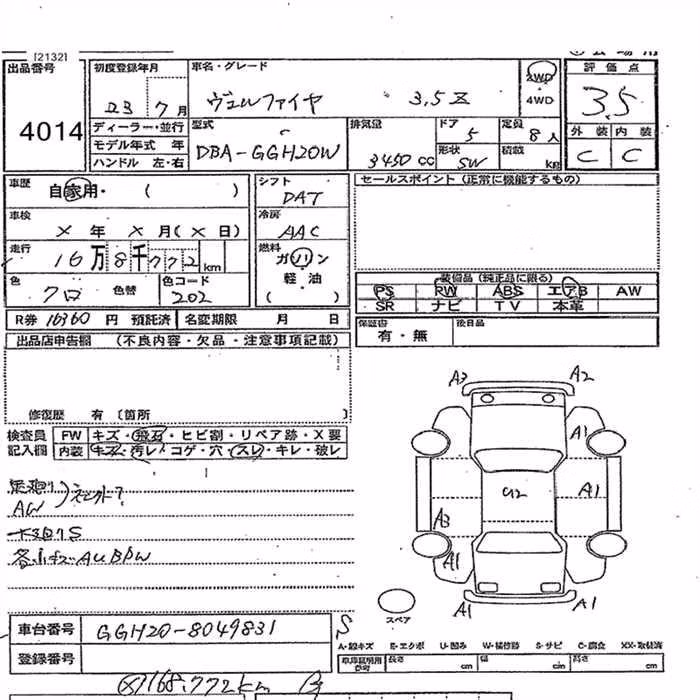 [2132]
出品番号
4014
初度登録年月
23 7月
車名・グレード
ヴェルファイヤ 3.5Z
2WD
4WD
評価点
3.5
外装 内装
C C
ディーラー・並行
モデル年式 年
ハンドル 左・右
型式
DBA-GGH20W
排気量
3450cc
ドア
5
形状
SW
定員
8人
積載
kg
車歴
自家用・( )
シフト
DAT
車検
X年 X月(X日)
冷房
AAC
走行
16万8千772km
燃料
ガソリン
軽・油
( )
色
クロ
色替
色コード
202
R券 16360円 預託済
名変期限 月 日
セールスポイント (正常に機能するもの)
装備品(純正品に限る)
PS RW ABS エアB AW
SR ナビ TV 本革
保証書
有・無
後日品
出品店申告欄 (不良内容・欠品・注意事項記載)
修復歴 有 〔箇所 〕
検査員
記入欄
FW キズ・飛石・ヒビ割・リペア跡・X要
内装 キズ・汚レ・コゲ・穴・スレ・キレ・破レ
足廻り
AW
下廻りS
各AUBPW
A3 A2
A1
U2
A1
A3
A1
A1 A1
スペア
S
車台番号
GGH20-8049831
登録番号
A-線キズ E-エクボ U-凹み W-補修跡 S-サビ C-腐食 XX-取替済
車庫証明用
参考
長さ cm 幅 cm 高さ cm
168,772km